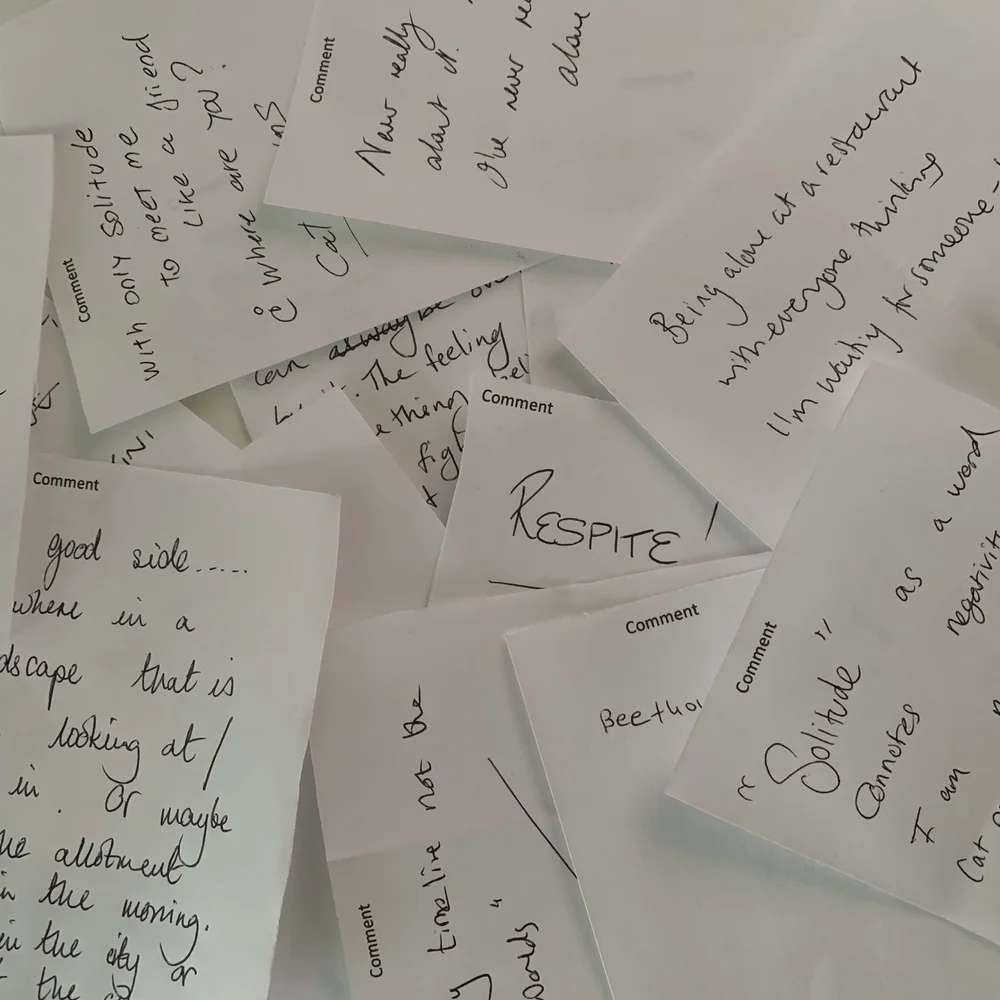 Comment
With only Solitude
to meet me
like a friend
Where are you?
Cat
Comment
Now really
about it.
I've never
alone
Being alone at a restaurant
with everyone thinking
I'm waiting for someone
can always be
The feeling
thing
Comment
RESPITE
Comment
good side.....
where in a
that is
looking at /
in. Or maybe
allotment
in the morning.
in the city or
the
Comment
timeline not the
worlds"
Comment
Beetho
Comment
"Solitude" as a word
Connotes
I am
Cat